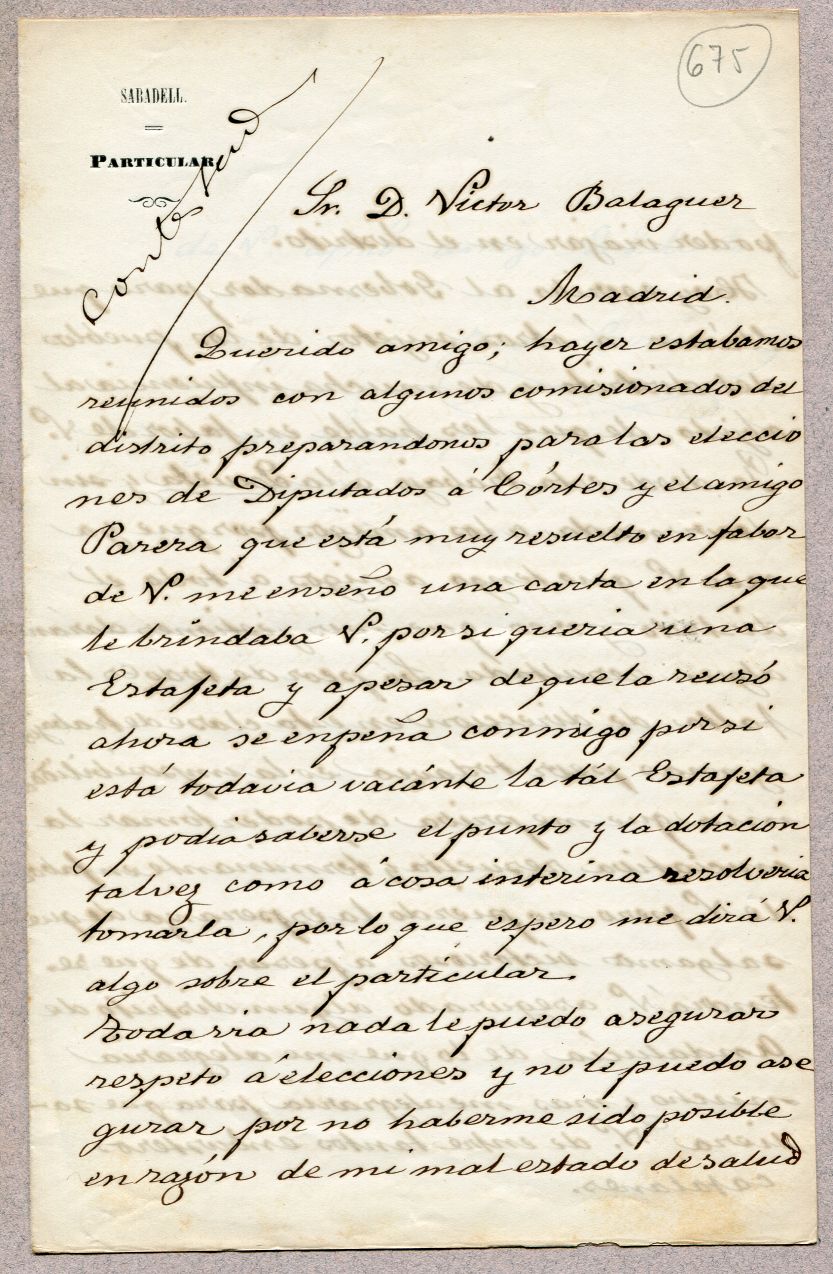 675
SABADELL.
PARTICULAR
Contestad
Sr. D. Victor Balaguer
Madrid.
Querido amigo; hayer estabamos
reunidos con algunos comisionados del
distrito preparandonos para las eleccio
nes de Diputados á Córtes y el amigo
Parera que está muy resuelto en fabor
de V. me enseño una carta en la que
le brindaba V. por si queria una
Estafeta y apesar de que la reusó
ahora se enpeña conmigo por si
está todavia vacánte la tál Estafeta
y podia saberse el punto y la dotación
talvez como á cosa interina resolveria
tomarla, por lo que espero me dirá V.
algo sobre el particular.
Todavia nada le puedo asegurar
respeto á elecciones y no le puedo ase
gurar por no haberme sido posible
en razón de mi mal estado de salud